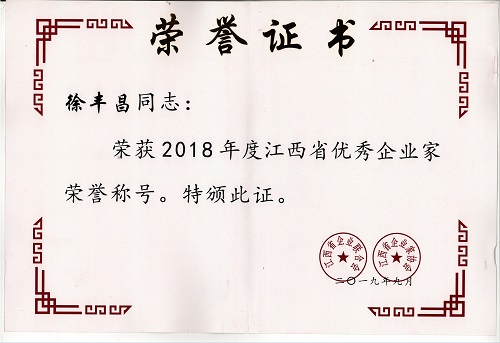 荣誉证书
徐丰昌同志：
荣获2018年度江西省优秀企业家
荣誉称号。特颁此证。
江西省企业联合会
江西省企业家协会
二〇一九年九月